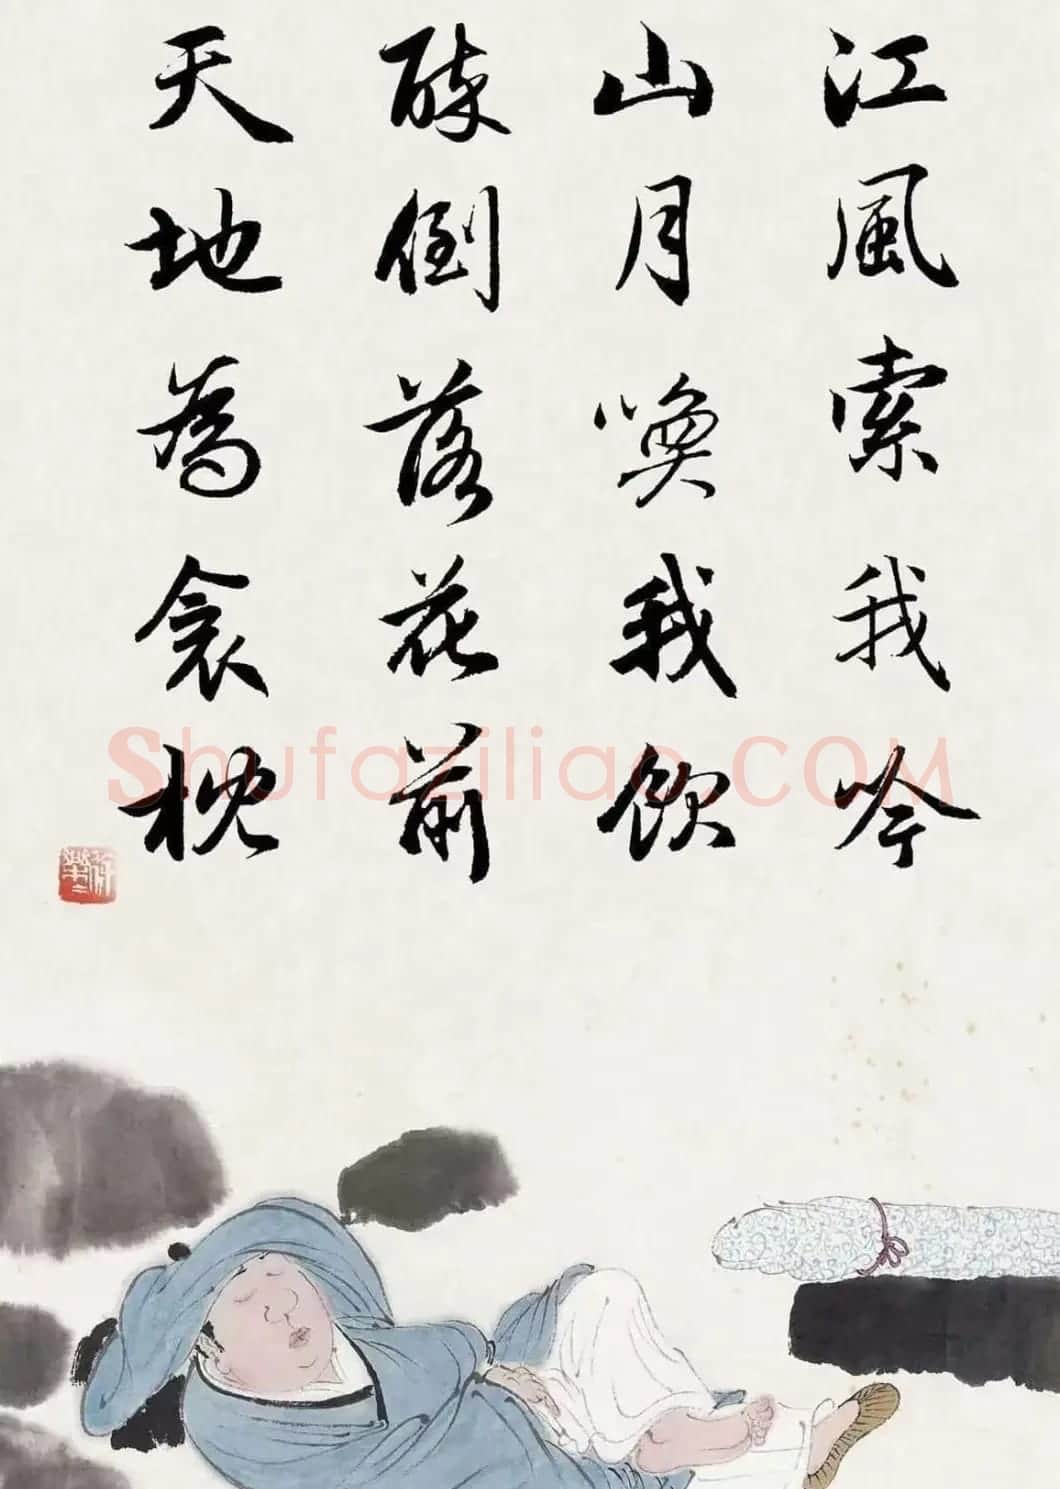 江風索我吟
山月喚我飲
醉倒落花前
天地為衾枕
Shufaziliao.COM